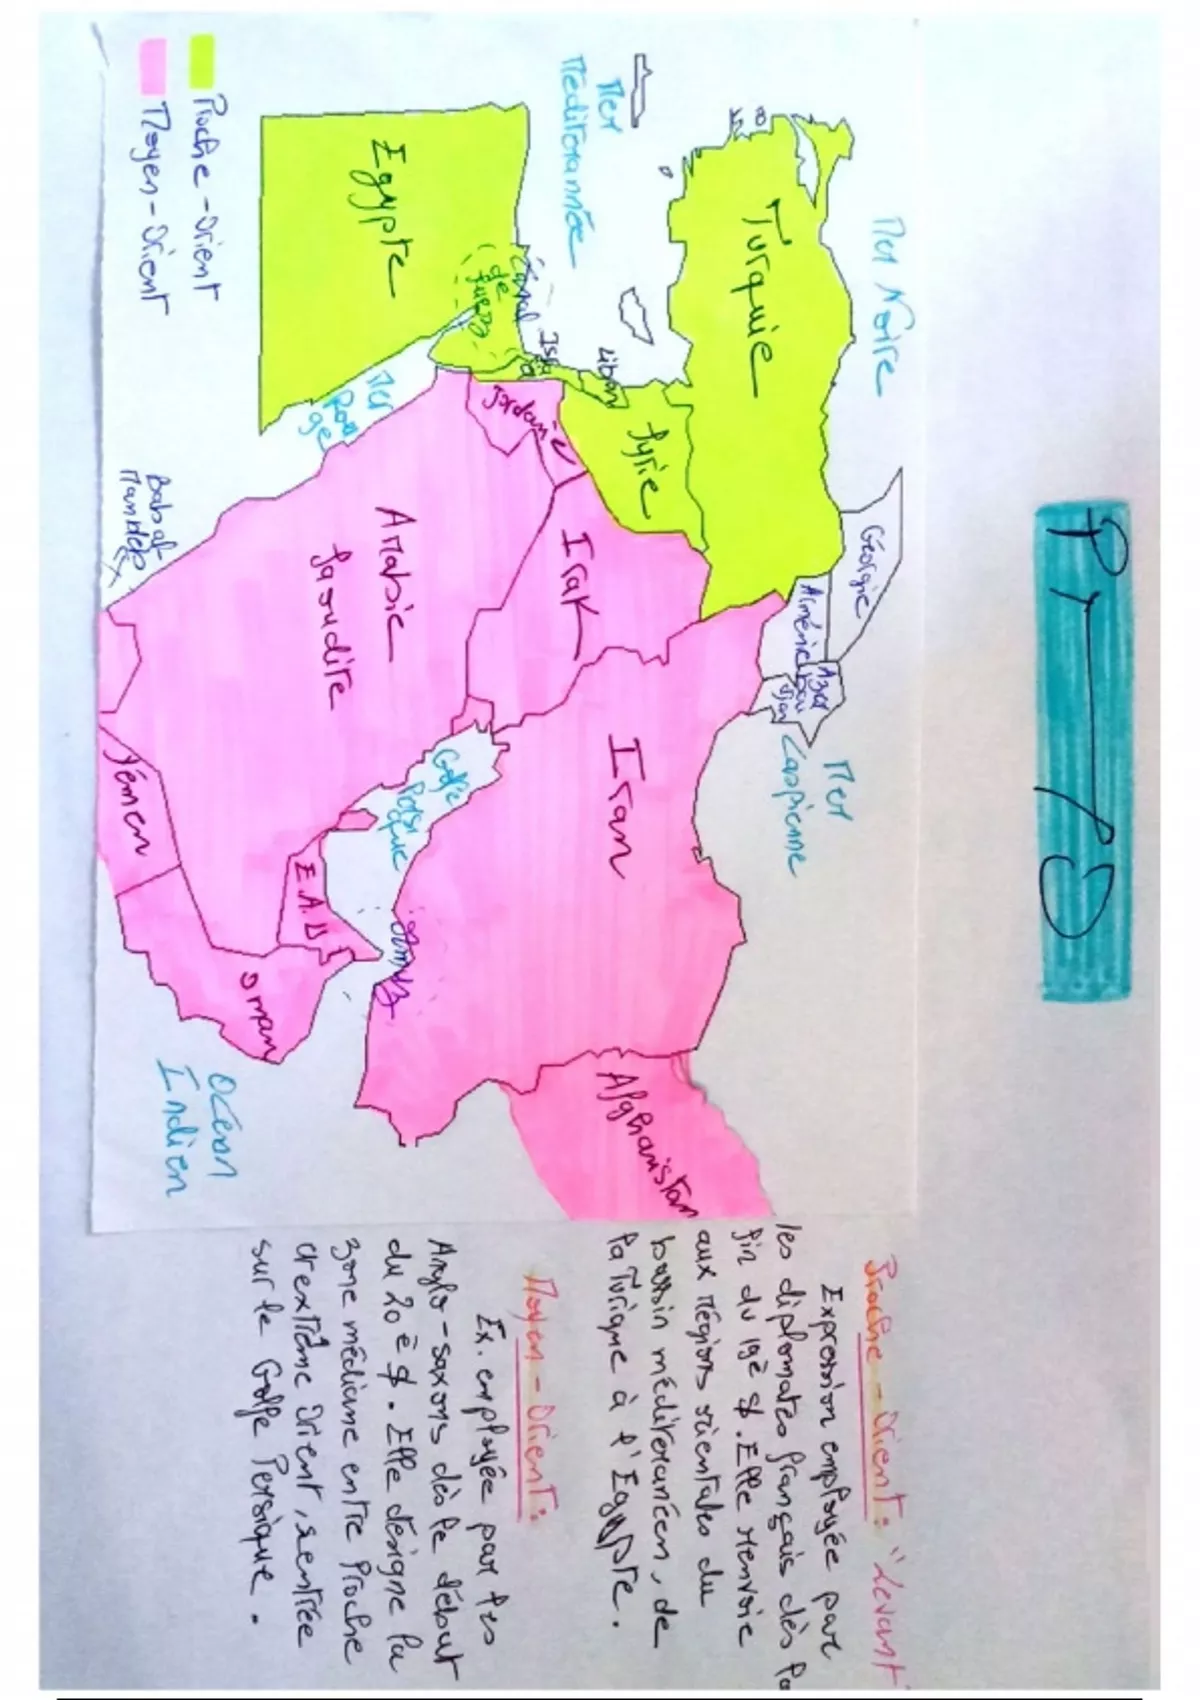 Mer Noire
Géorgie
Arménie
Azer
bai
djan
Mer
Caspienne
Turquie
Mer
Méditerannée
Liban
Syrie
Isr
Irak
Iran
Afghanistan
Canal
de
Suez
Jordanie
Egypte
Mer
Rou
ge
Arabie
Saoudite
Golfe
Persi
que
Ormuz
E.A.U
Oman
Yémen
Bab al
Mandeb
Océan
Indien
Proche-Orient
Moyen-Orient
Proche-Orient: "Levant"
Expression employée par
les diplomates français dès la
fin du 19è s. Elle renvoie
aux régions orientales du
bassin méditeranéen, de
la Turique à l'Egypte.
Moyen-Orient:
Ex. employée par les
Anglo-saxons dès le début
du 20è s. Elle désigne la
zone médiane entre Proche
et extrême Orient, sentrée
sur le Golfe Persique.